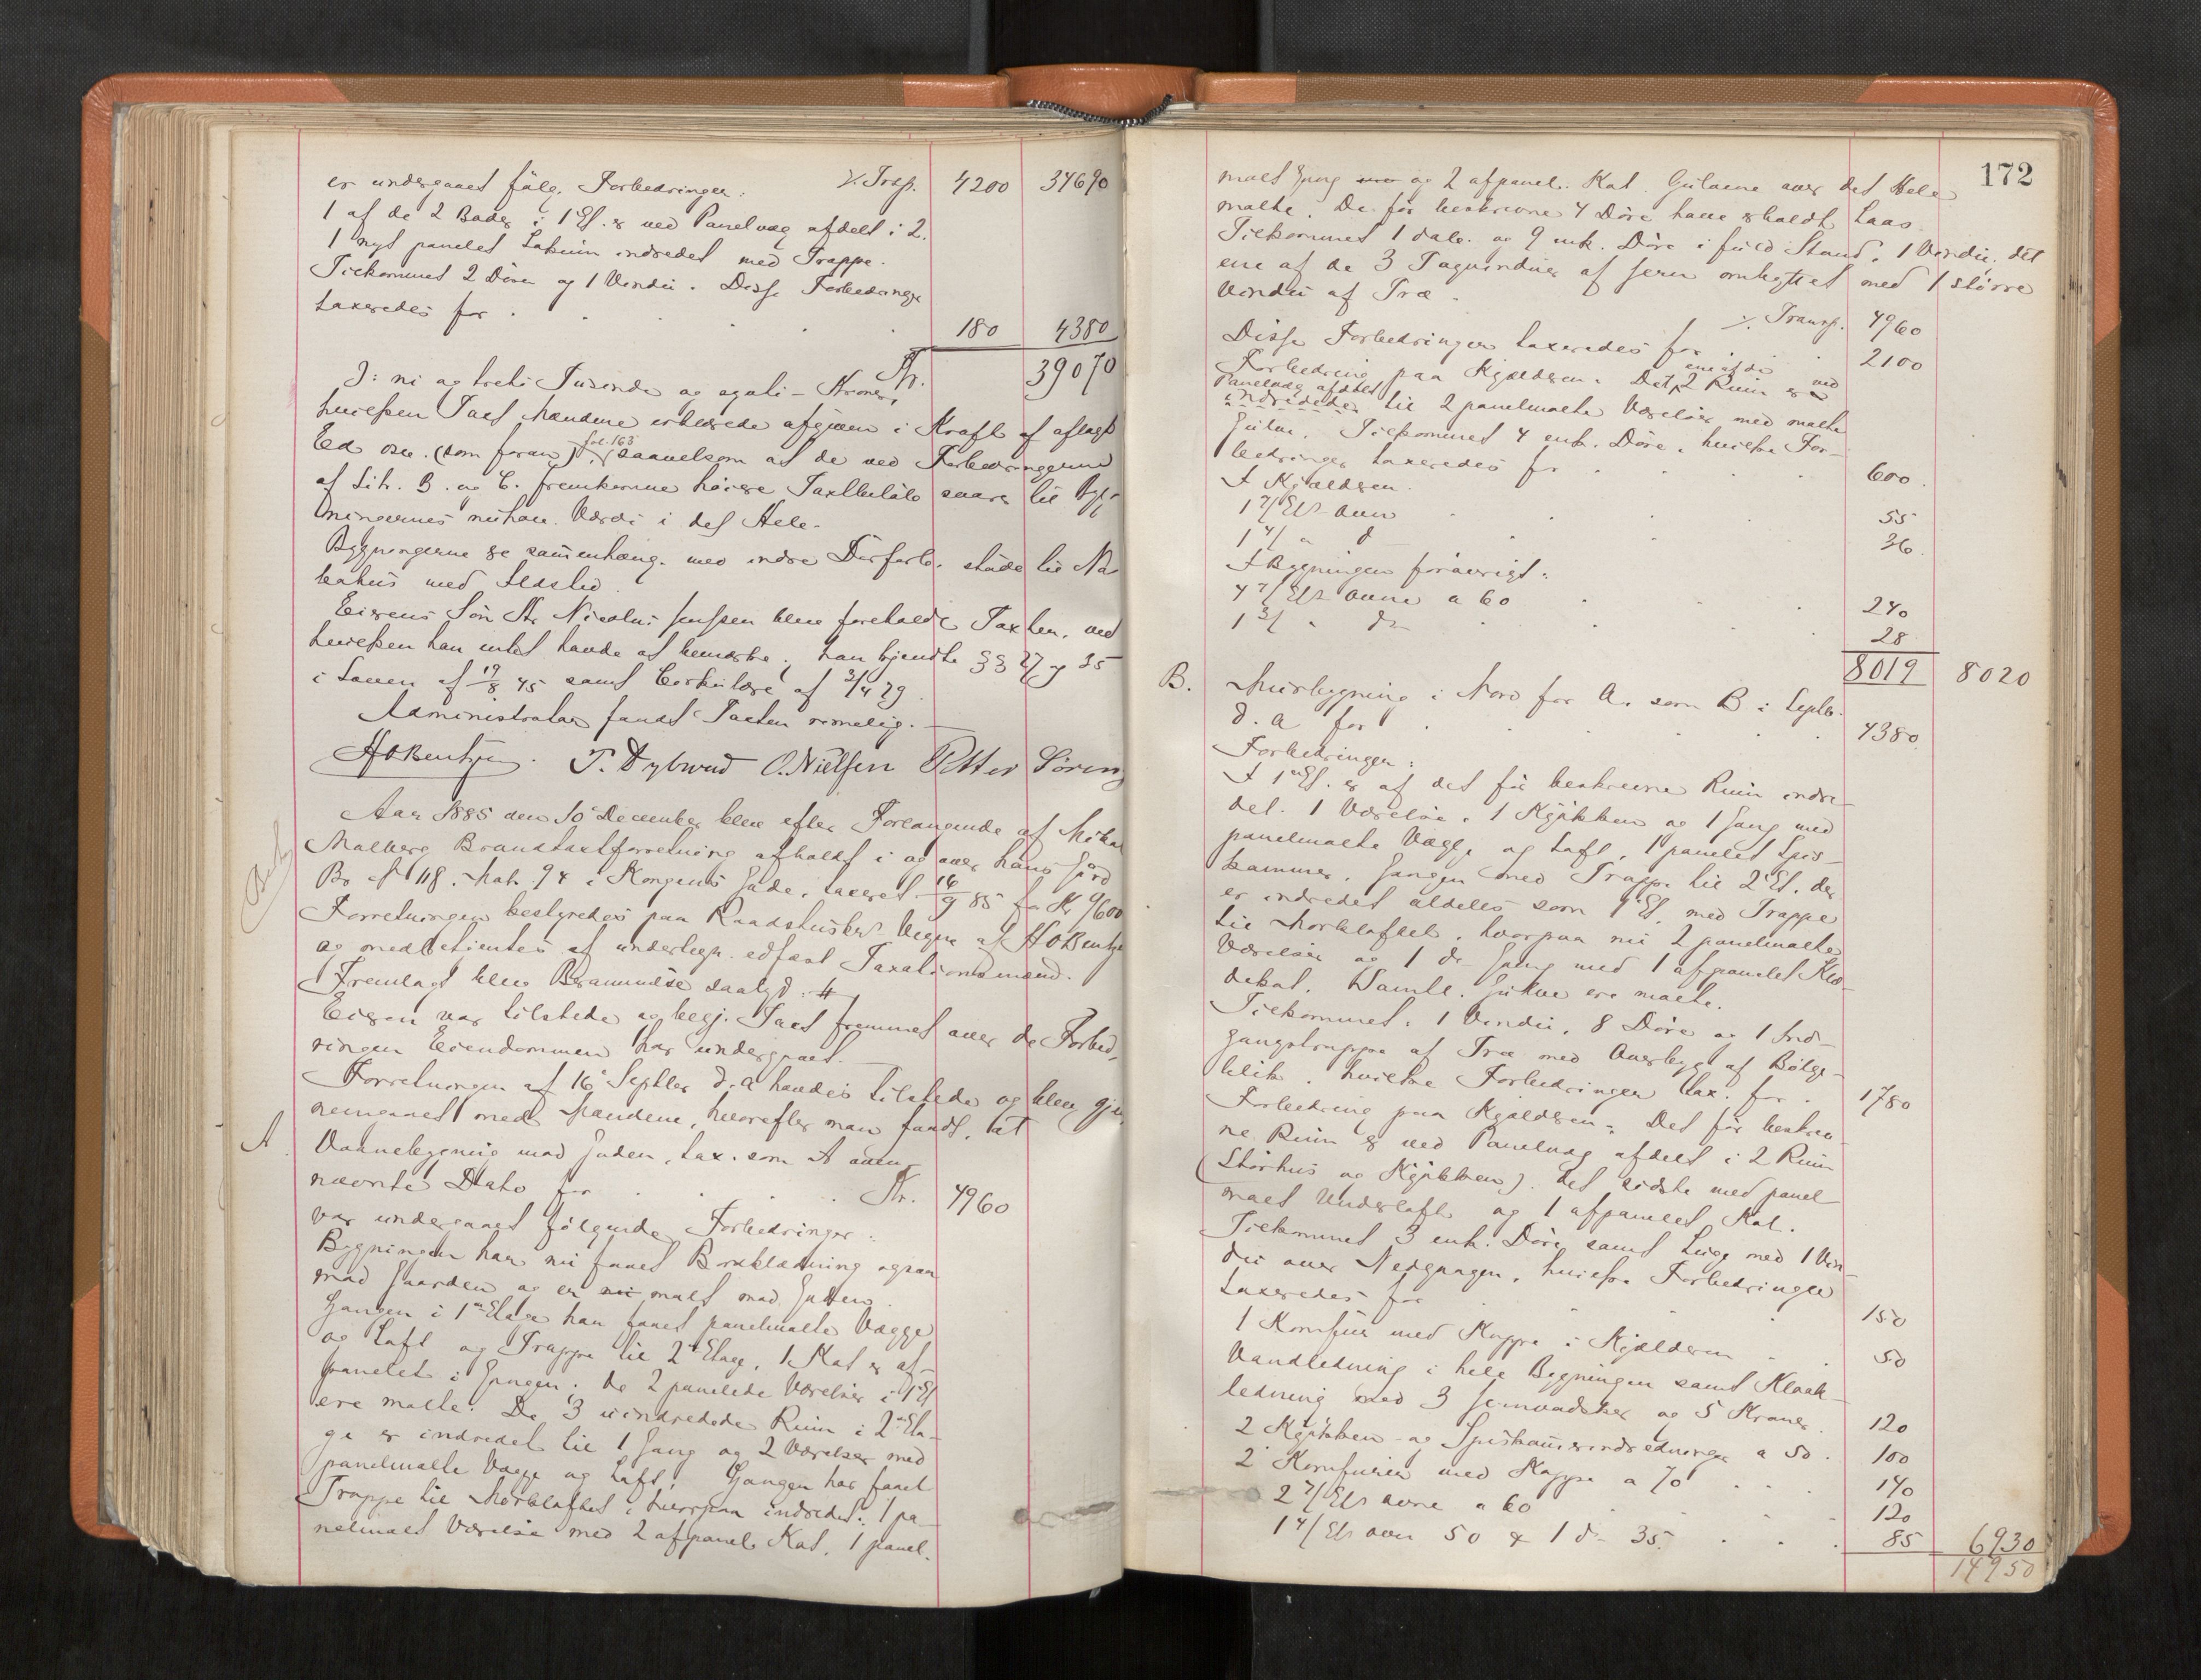 er undergaaet følg. Forbedringer: ⁒ Trsp. 4200 34690
1 af de 2 Boder i 1 Et. er ved Panelvæg afdelt i 2.
1 nyt panelet Lokum indredet med Trappe.
Tilkommet 2 Døre og 1 Vindu. Disse Forbedringer
taxeredes for . . . . . 180 4380
Kr. 39070
ɔ: ni og treti Tusinde og sytti - Kroner,
hvilken Taxt Mændene erklærede afgiven i Kraft af aflagt
Ed osv. (som foran) fol. 163 saavelsom at de ved Forbedringerne
af Litr. B. og C. fremkomne høiere Taxtbeløb svarer til Byg-
ningernes nuhav. Værdi i det Hele.
Bygningerne ere sammenhæng. med indre Dørforb. støde til Na-
bohus med Ildsted.
Eierens Søn Hr. Nicolai Jenssen blev foreholdt Taxten, ved
hvilken han intet havde at bemærke; han kjendte §§ 27 og 35
i Loven af 19/8 45 samt Cirkulære af 3/4 29.
Administrator fandt Taxten rimelig.
HOBentzen. T. Dybwad O. Nielsen Petter Sørens
Aar 1885 den 10de December blev efter Forlangende af Mikal
Malberg Brandtaxtforretning afholdt i og over hans Gaard
Br. No 118. Mat. 94 i Kongens Gade, taxeret 16/9 85 for Kr 9600
Forretningen bestyredes paa Raadstuskr. Vegne af HOBentzen
og medbetjentes af underlegn. edfæst Taxationsmænd.
Fremlagt blev Berammelse saalyd: #
Eieren var tilstede og begj. Taxt fremmet over de Forbed-
ringer Eiendommen har undergaaet.
Forretningen af 16 Septbr d. a. havdes tilstede og blev gjen-
nemgaaet med Mændene, hvorefter man fandt, at
A. Vaanebygning mod Gaden, tax. som A oven-
nævnte Dato for . . . Kr. 4960
var undergaaet følgende Forbedringer:
Bygningen har nu faaet Bordklædning ogsaa
mod Gaarden og er malt mod Gaden.
Gangen i 1ste Etage har faaet panelmalte Vægge
og Loft og Trappe til 2den Etage. 1 Kot er af-
panelet i Gangen; de 2 panelede Værelser i 1 Et
ere malte. De 3 uindredede Rum i 2den Eta-
ge er indredet til 1 Gang og 2 Værelser med
panelmalte Vægge og Loft; Gangen har faaet
Trappe til Mørkloftet, hvorpaa indredet: 1 pa-
nelmalt Værelse med 2 afpanel. Kot, 1 panel-
172
malt Gang og 2 afpanel. Kot. Gulvene over det Hele
malte. De før beskrevne 4 Døre have erholdt Laas.
Tilkommet 1 dob. og 9 enk. Døre i fuld Stand. 1 Vindu. det
ene af de 3 Tagvinduer af Jern ombyttet med 1 større
Vindu af Træ.
⁒ Transp. 4960
Disse Forbedringer taxeredes for . . 2100
Forbedring paa Kjælderen. Det ene af de 2 Rum er ved
Panelvæg afdelt
indredede til 2 panelmalte Værelser med malte
Gulve. Tilkommet 4 enk. Døre, hvilke For-
bedringer taxeredes for . . . 600.
I Kjælderen.
1 2/Ets Ovn . . . 55
1 1/ " do . . . 36.
I Bygningen forøvrigt:
4 2/Ets Ovne a 60 . . . 240
1 3/ " do . . . 28
8019 8020
B. Murbygning i Nord for A. som B i Septbr.
d. a. for . . . . 4380.
Forbedringer:
I 1ste Et. er af det før beskrevne Rum indre-
det. 1 Værelse, 1 Kjøkken og 1 Gang med
panelmalte Vægge og Loft, 1 panelet Spis-
kammer. Gangen med Trappe til 2 Et. der
er indredet aldeles som 1 Et. med Trappe
til Mørkloftet, hvorpaa nu 2 panelmalte
Værelser og 1 do Gang med 1 afpanelet Klæ-
dekot. Samtl. Gulve ere malte.
Tilkommet: 1 Vindu, 8 Døre og 1 Ind-
gangstrappe af Træ med Overbygg af Bølge-
blik. hvilke Forbedringer tax. for . 1780
Forbedring paa Kjælderen: Det før beskrev-
ne Rum er ved Panelvæg afdelt i 2 Rum
(Størhus og Kjøkken). det sidste med panel-
malt Underloft og 1 afpanelet Kot.
Tilkommet 3 enk. Døre samt Luge med 1 Vin-
du over Nedgangen, hvilke Forbedringer
taxeredes for . . . 150
1 Komfur med Kappe i Kjælderen . . 50
Vandledning i hele Bygningen samt Kloak-
ledning med 3 Jernvadsker og 5 Kraner. 120
2 Kjøkken- og Spiskammerindredninger a 50. 100
2 Komfurer med Kappe a 70 . . . 140
2 2/Ets Ovne a 60 . . . 120
1 4/Ets Ovn 50 & 1 do 35. . . . 85 6930
14950